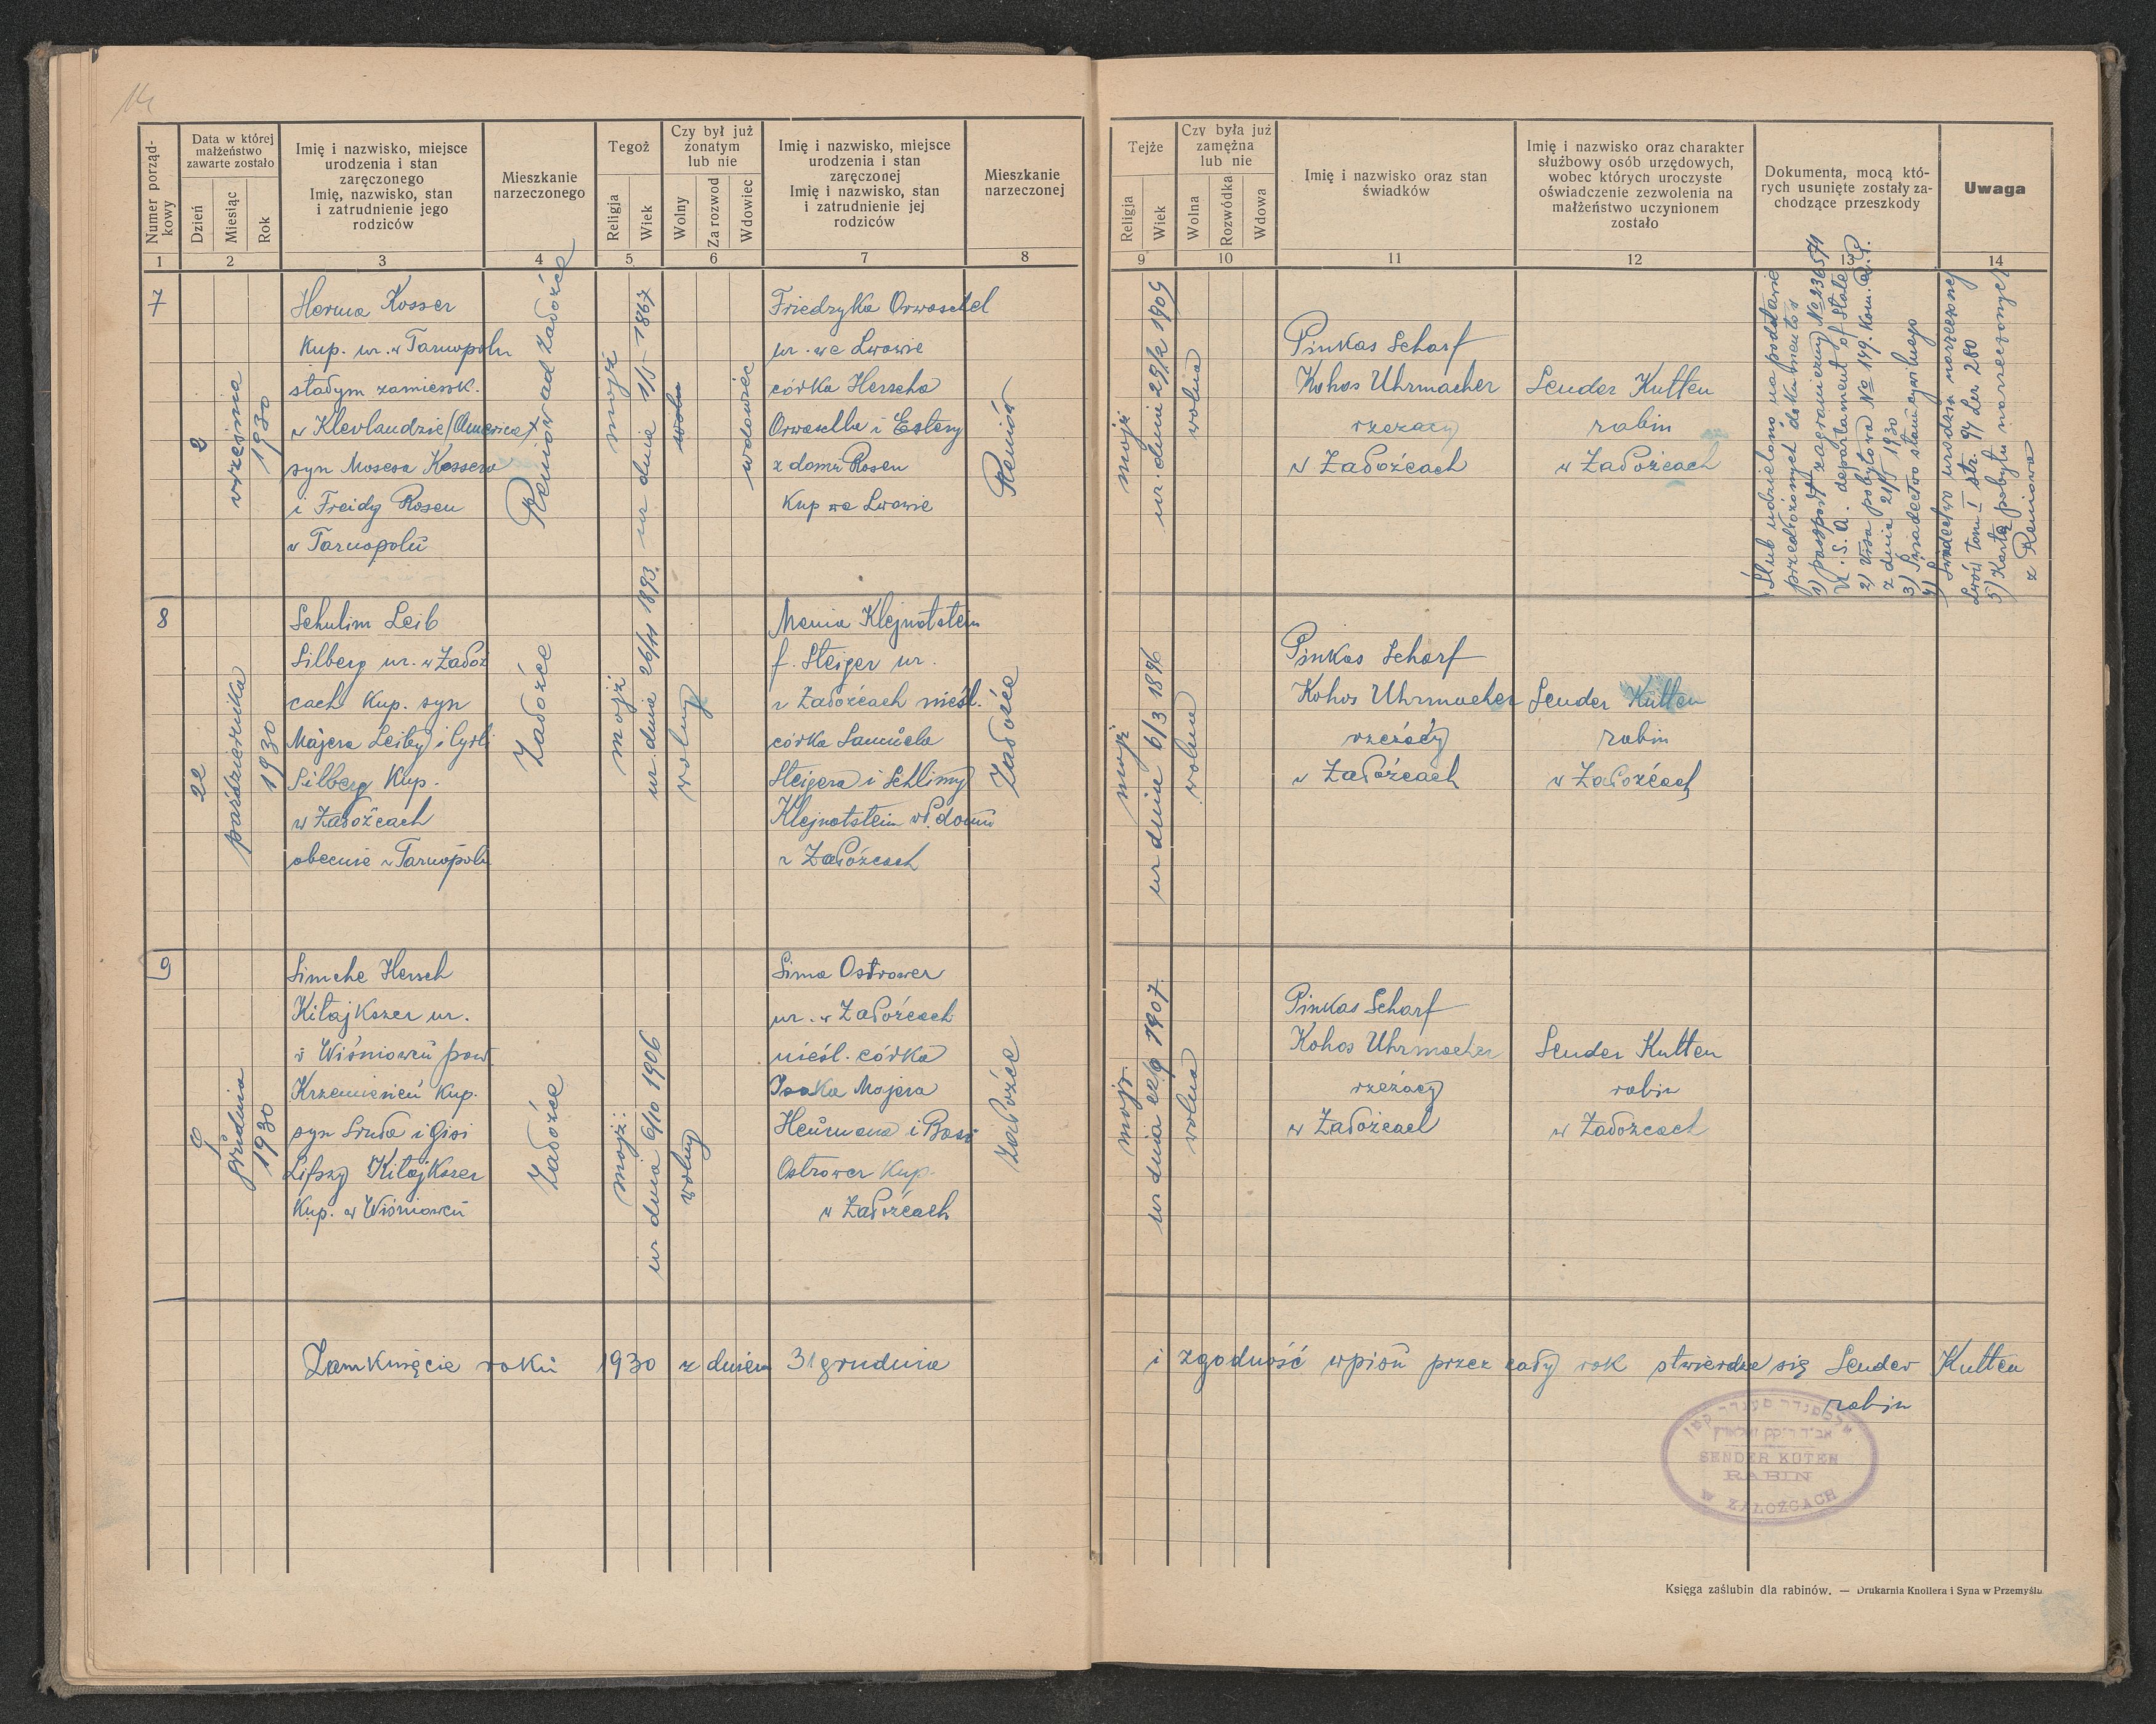 14
Numer porząd-
kowy
Data w której
małżeństwo
zawarte zostało
Dzień
Miesiąc
Rok
Imię i nazwisko, miejsce
urodzenia i stan
zaręczonego
Imię, nazwisko, stan
i zatrudnienie jego
rodziców
Mieszkanie
narzeczonego
Tegoż
Religja
Wiek
Czy był już
żonatym
lub nie
Wolny
Za rozwod
Wdowiec
Imię i nazwisko, miejsce
urodzenia i stan
zaręczonej
Imię i nazwisko, stan
i zatrudnienie jej
rodziców
Mieszkanie
narzeczonej
Tejże
Religja
Wiek
Czy była już
zamężna
lub nie
Wolna
Rozwódka
Wdowa
Imię i nazwisko oraz stan
świadków
Imię i nazwisko oraz charakter
służbowy osób urzędowych,
wobec których uroczyste
oświadczenie zezwolenia na
małżeństwo uczynionem
zostało
Dokumenta, mocą któ-
rych usunięte zostały za-
chodzące przeszkody
Uwaga
1 2 3 4 5 6 7 8 9 10 11 12 13 14
7
2
września
1930
Herma Kosser
Kup. ur. w Tarnopolu
stałym zamieszk.
w Klevlandzie (America)
syn Mosesa Kossera
i Freidy Rosen
w Tarnopolu
Reniów ad Załoźce
mojż
ur dnia 1/5 1867
wolny
wdowiec
Friedzyka Orwaschel
ur. we Lwowie
córka Herscha
Orwaschla i Estery
z domu Rosen
Kup we Lwowie
Reniów
mojż
ur. dnia 29/2 1909
wolna
Pinkas Scharf
Kohos Uhrmacher
rzezacy
w Załoźcach
Sender Kutten
rabin
w Załoźcach
Ślub udzielono na podstawie
przedłożonych dokumentów
1) passport zagraniczny No 236571
U. S. A. departament of State
2) Visa pobytowa No 149. Kon. R.P.
z dnia 21/5 1930
3) Świadectwo stanu cywilnego
4) Świadectwo urodzin narzeczonej
Lwów Tom I str. 94 Ler 280
5) Karta pobytu narzeczonych
z Reniowa
8
22
października
1930
Schulim Leib
Silberg ur. w Załoź
cach Kup. syn
Majera Leiby i Cyrli
Silberg Kup.
w Załoźcach
obecnie w Tarnopolu
Załoźce
mojż
ur. dnia 26/11 1893.
wolny
Mania Klejnotstein
f. Steiger ur.
w Załoźcach nieśl.
córka Samuela
Steigera i Schlimy
Klejnotstein wł. domu
w Załoźcach
Załoźce
mojż
ur dnia 6/3 1896
wolna
Pinkas Scharf
Kohos Uhrmacher
rzezacy
w Załoźcach
Sender Kutten
rabin
w Załoźcach
9
9
grudnia
1930
Simche Hersch
Kitajkszer ur.
w Wiśniowcu pow.
Krzemieniec Kup.
syn Srula i Gisi
Lifszy Kitajkszer
Kup. w Wiśniowcu
Załoźce
mojż.
ur dnia 6/10 1906
wolny
Sima Ostrower
ur. w Załoźcach
nieśl. córka
Isaka Majera
Heürmana i Basi
Ostrower Kup.
w Załoźcach
Załoźce
mojż.
ur dnia 22/9 1907
wolna
Pinkas Scharf
Kohos Uhrmacher
rzezacy
w Załoźcach
Sender Kutten
rabin
w Załoźcach
Zamknięcie roku 1930 z dniem 31 grudnia i zgodność wpisu przez cały rok stwierdza się Sender Kutten
rabin
SENDER KUTEN
RABIN
W ZAŁOZCACH
Księga zaślubin dla rabinów. — Drukarnia Knollera i Syna w Przemyślu